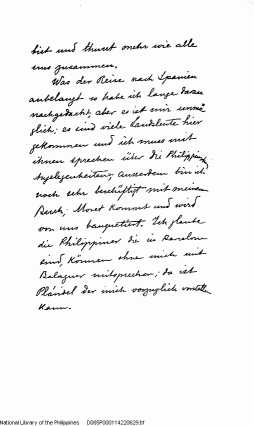 bist und thuust mehr wie alle
uns zusammen.
Was der Reise nach Spanien
anbelangt so habe ich lange daran
nachgedacht, aber es ist mir unmö
glich; es sind viele Landsleute hier
gekommen und ich muss mit
ihnen sprechen über die Philippin
Angelegenheiten; Ausserdem bin ich
noch sehr beschäftigt mit meinem
Moret kommt und wird
von uns banquetiert. Ich glaube
die Philippiner die in Barcelona
sind, können ohne mich mit
Balaguer mitsprechen; da ist
Pláridel der mich vorzüglich vorstellen
kann.
National Library of the Philippines